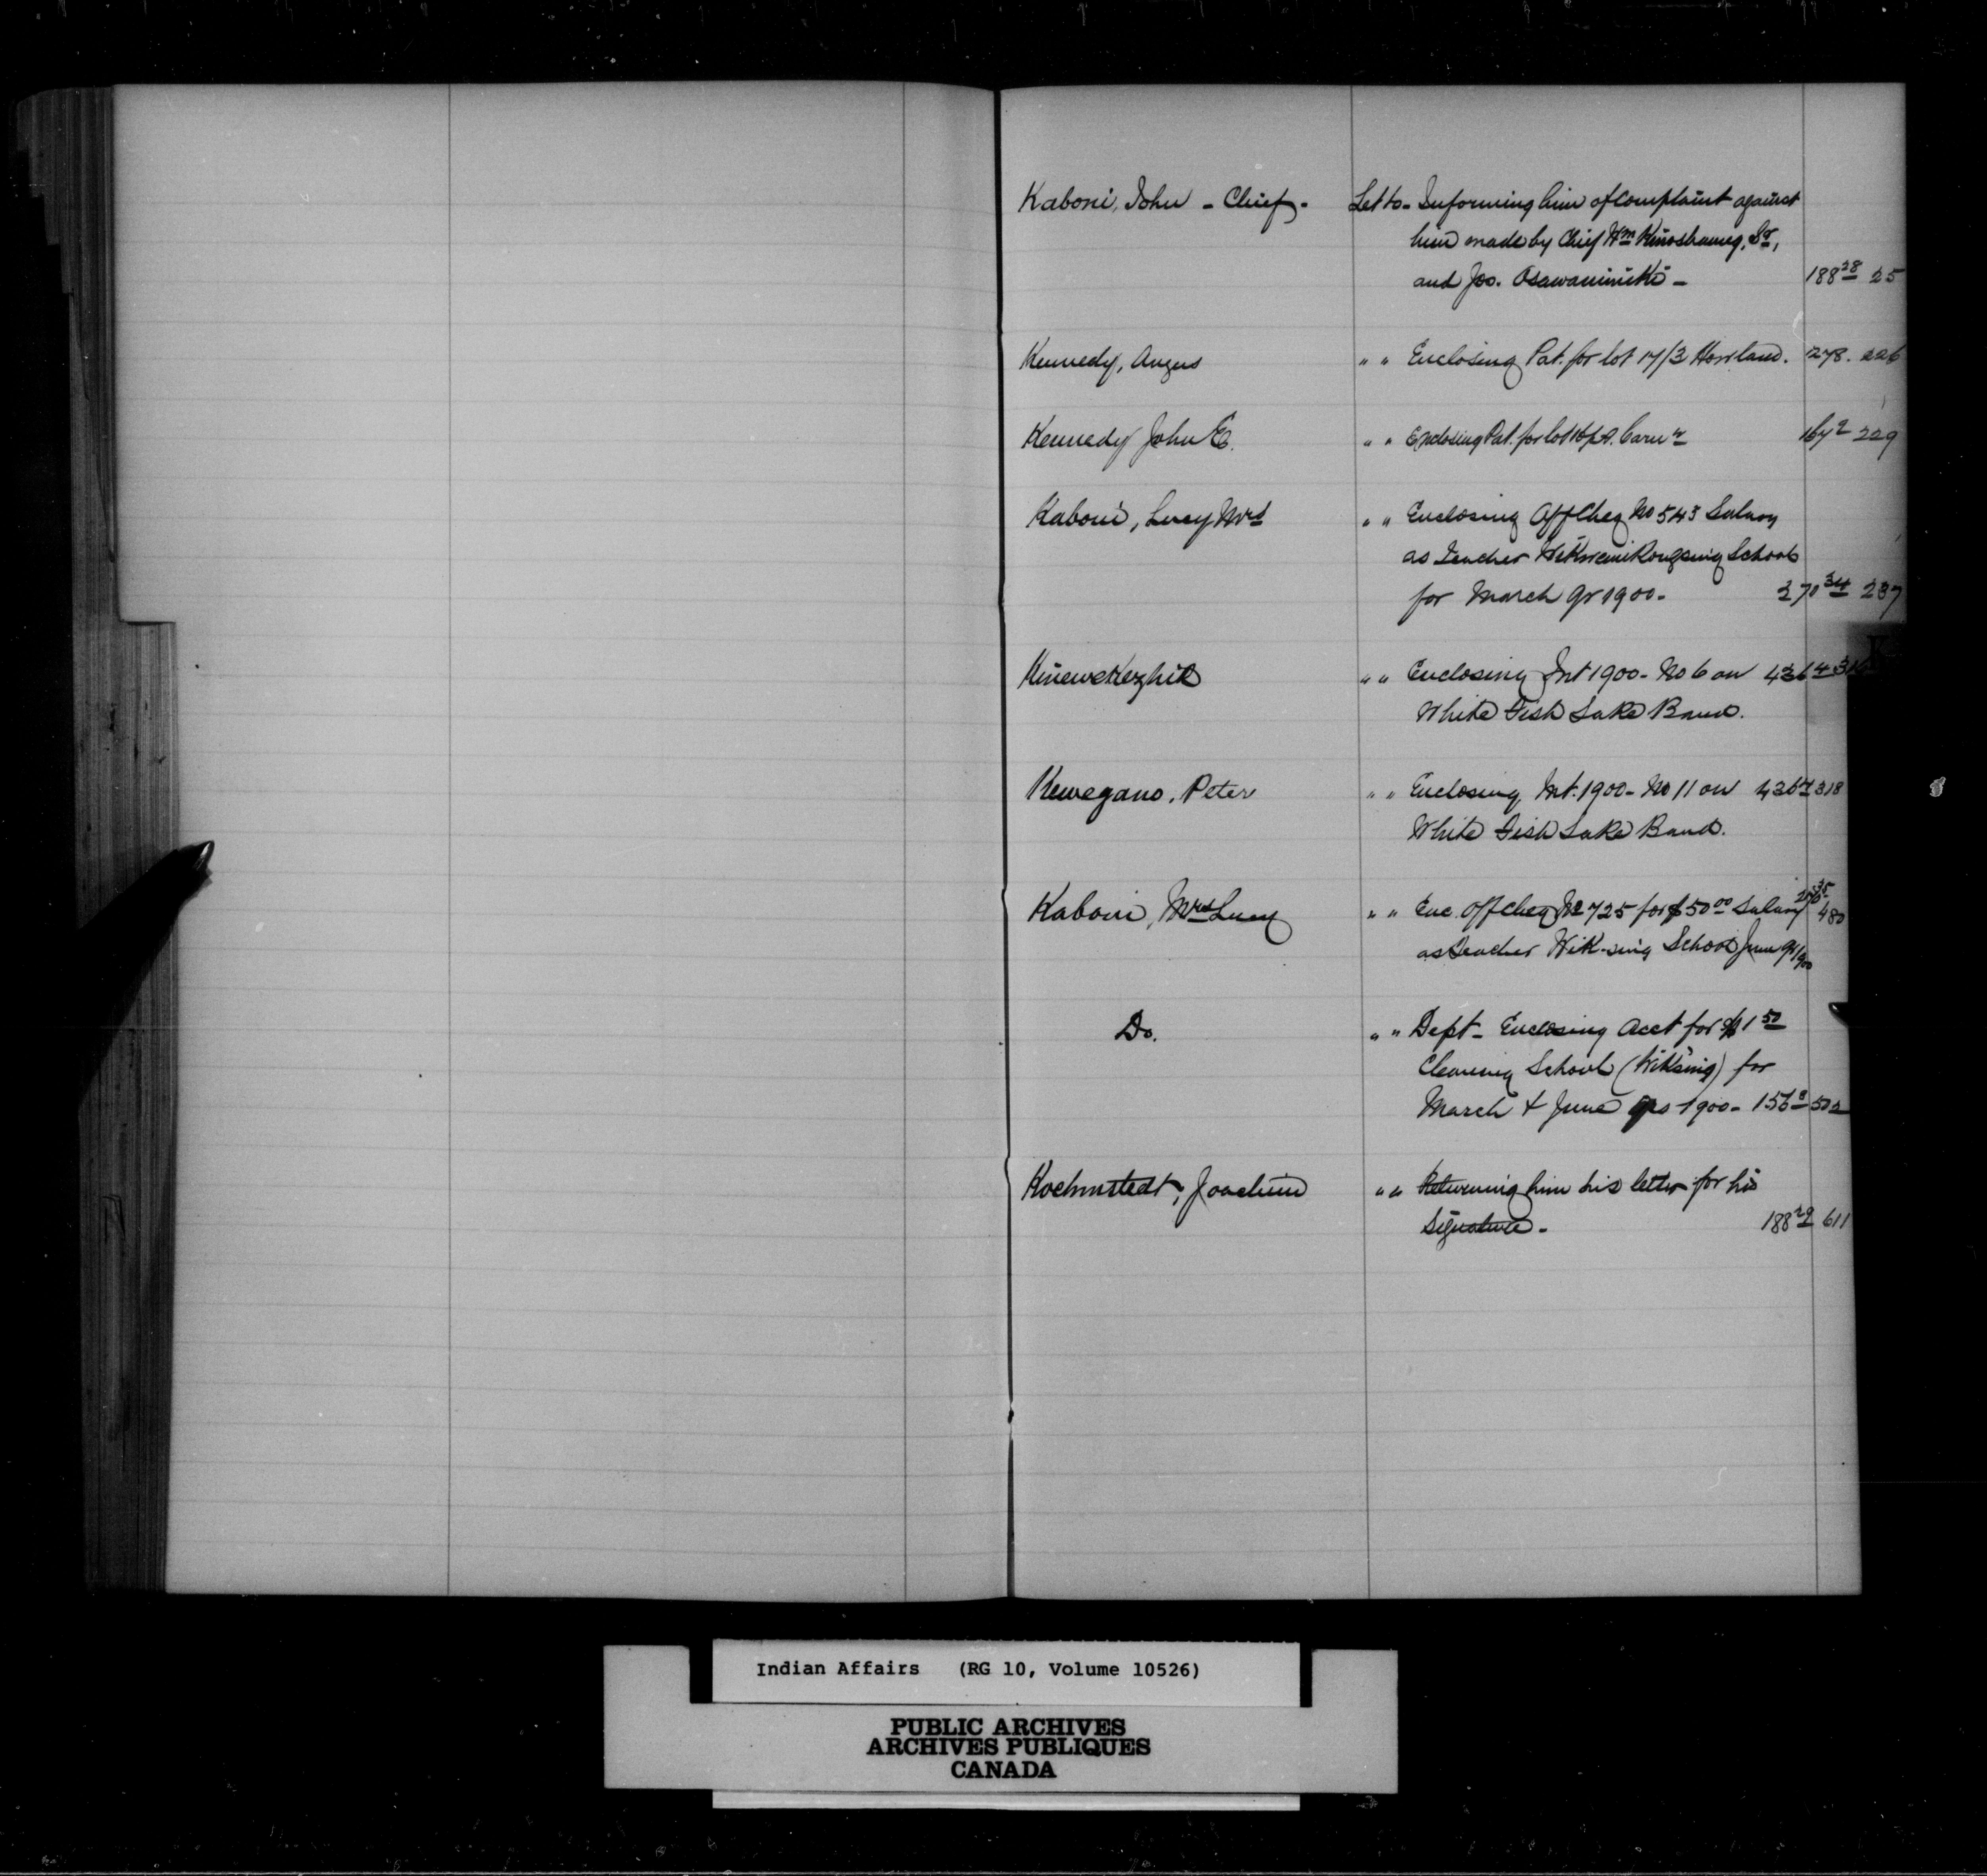 Kaboni, John - Chief - Let to - Informing him of complaint against
him made by Chief Wm Kinoshameg, Sr,
and Jos. Osawaminiki - 188 28 25
Kennedy, Angus " " Enclosing Pat. for lot 17/3 Howland. 278. 226
Kennedy John E. " " Enclosing Pat. for lot Carn 167 2 229
Kaboni, Lucy Mrs " " Enclosing Off Cheq No 543 Salary
as Teacher Wikwemikongsing School
for March qr 1900 - 270 34 237
Kinewekezhik " " Enclosing Int 1900 - No 6 on 436 4
White Fish Lake Band.
Kewegano, Peter " " Enclosing Int. 1900 - No 11 on 436 4 318
White Fish Lake Band.
Kaboni, Mrs Lucy " " Enc. Off Cheq No 725 for $50 00 Salary 270 35 480
as teacher Wik-sing School June qr 1900
Do. " " Dept - Enclosing Acct for $1 50
Cleaning School (Wik'sing) for
March & June qrs 1900 - 156 2 502
Kochmstedt, Joachim " " Returning him his letter for his
Signature - 188 29 611
K
Indian Affairs (RG 10, Volume 10526)
PUBLIC ARCHIVES
ARCHIVES PUBLIQUES
CANADA